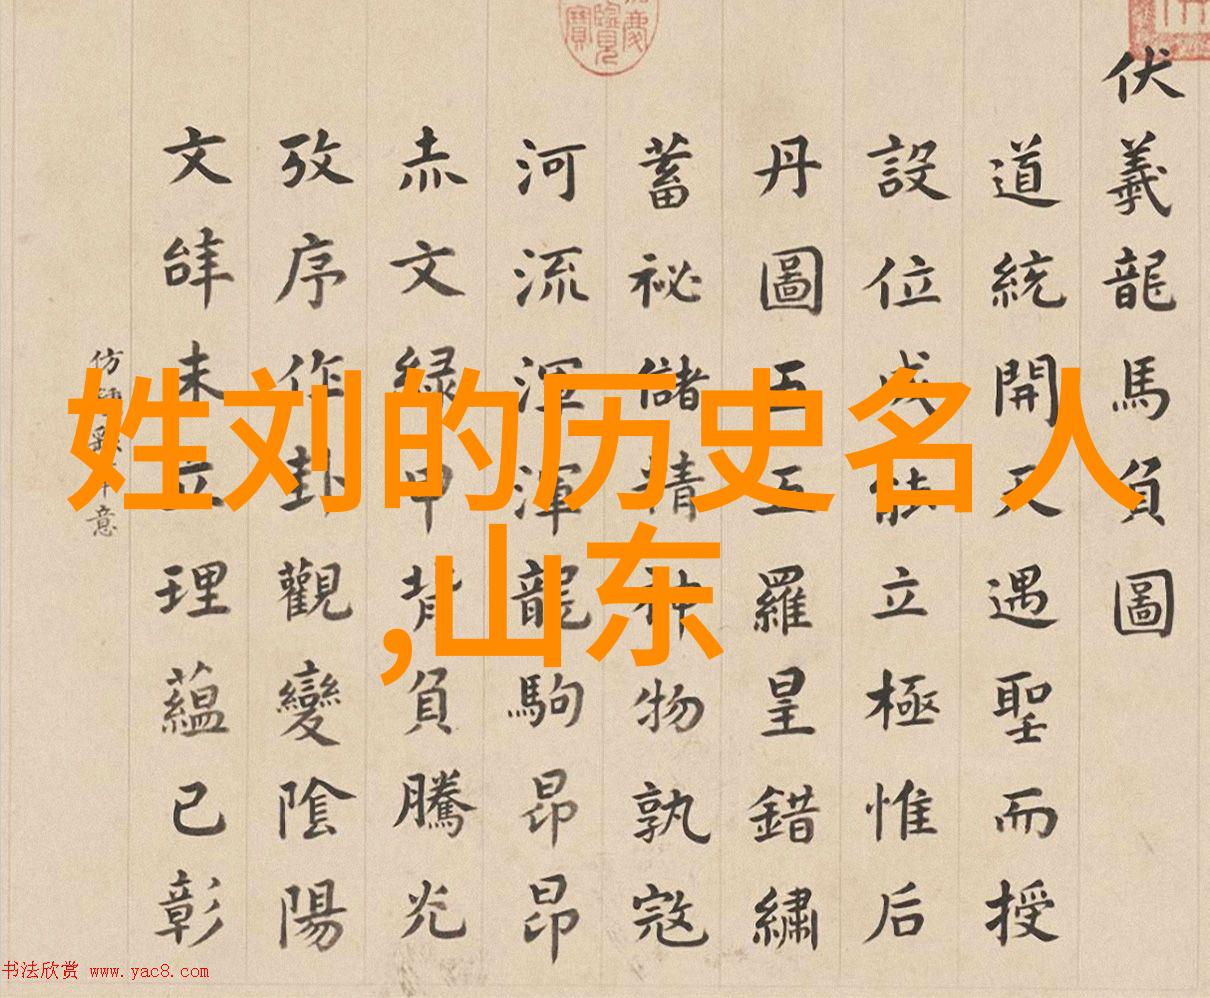 伏羲龍馬負圖
道統開天遇聖而授
設位成能立極惟后
丹圖五五羅星錯繡
蓄祕儲精神物孰寇
河流渾渾龍駒昂昂
赤文綠甲背負騰光
攷序作卦觀變陰陽
文辝未立理蘊已彰
仿 意
姓刘的历史名人
,山东
书法欣赏 www.yac8.com